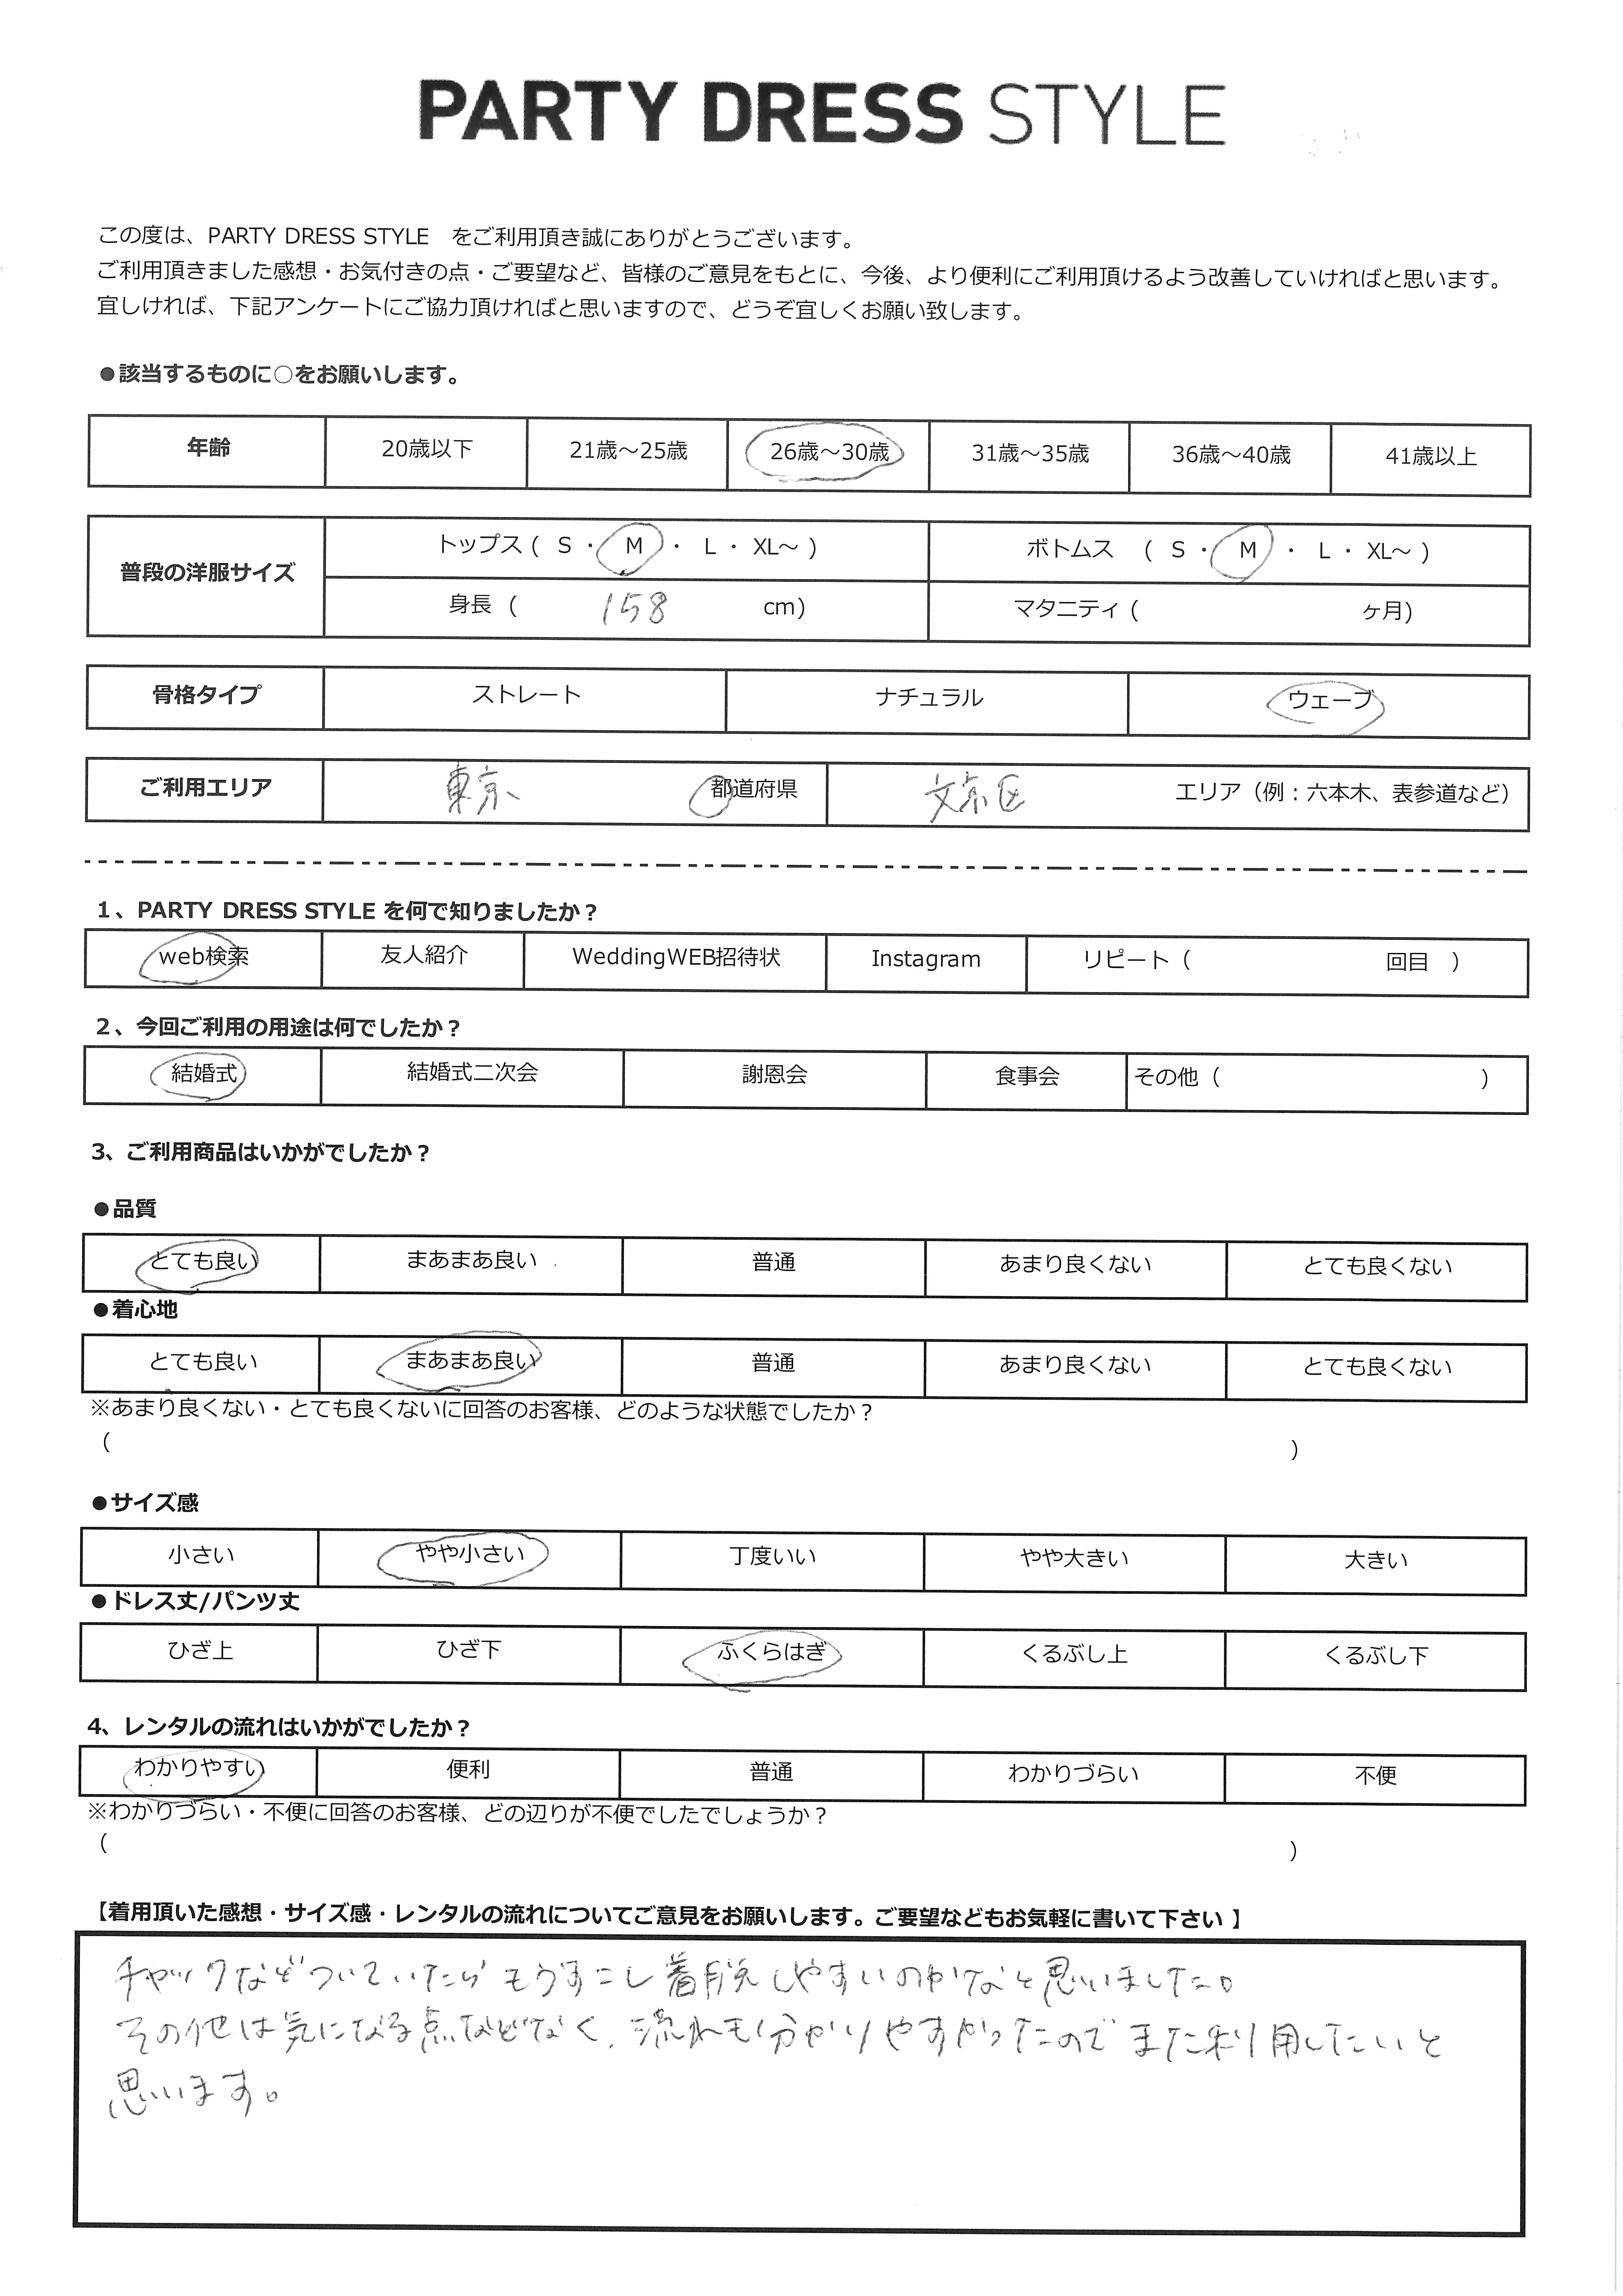 PARTY DRESS STYLE
この度は、PARTY DRESS STYLE　をご利用頂き誠にありがとうございます。
ご利用頂きました感想・お気付きの点・ご要望など、皆様のご意見をもとに、今後、より便利にご利用頂けるよう改善していければと思います。
宜しければ、下記アンケートにご協力頂ければと思いますので、どうぞ宜しくお願い致します。
●該当するものに○をお願いします。
年齢 20歳以下 21歳～25歳 26歳～30歳 31歳～35歳 36歳～40歳 41歳以上
普段の洋服サイズ
トップス ( S ・ M ・ L ・ XL～ ) ボトムス ( S ・ M ・ L ・ XL～ )
身長 ( 158 cm) マタニティ ( ヶ月)
骨格タイプ ストレート ナチュラル ウェーブ
ご利用エリア 東京 都道府県 文京区 エリア（例：六本木、表参道など）
1、PARTY DRESS STYLE を何で知りましたか？
web検索 友人紹介 WeddingWEB招待状 Instagram リピート（ 回目 ）
2、今回ご利用の用途は何でしたか？
結婚式 結婚式二次会 謝恩会 食事会 その他（ ）
3、ご利用商品はいかがでしたか？
●品質
とても良い まあまあ良い 普通 あまり良くない とても良くない
●着心地
とても良い まあまあ良い 普通 あまり良くない とても良くない
※あまり良くない・とても良くないに回答のお客様、どのような状態でしたか？
（ ）
●サイズ感
小さい やや小さい 丁度いい やや大きい 大きい
●ドレス丈/パンツ丈
ひざ上 ひざ下 ふくらはぎ くるぶし上 くるぶし下
4、レンタルの流れはいかがでしたか？
わかりやすい 便利 普通 わかりづらい 不便
※わかりづらい・不便に回答のお客様、どの辺りが不便でしたでしょうか？
（ ）
【着用頂いた感想・サイズ感・レンタルの流れについてご意見をお願いします。ご要望などもお気軽に書いて下さい 】
チャックなどついていたらもうすこし着脱しやすいのかなと思いました。
その他は気になる点などなく、流れも分かりやすかったのでまた利用したいと
思います。